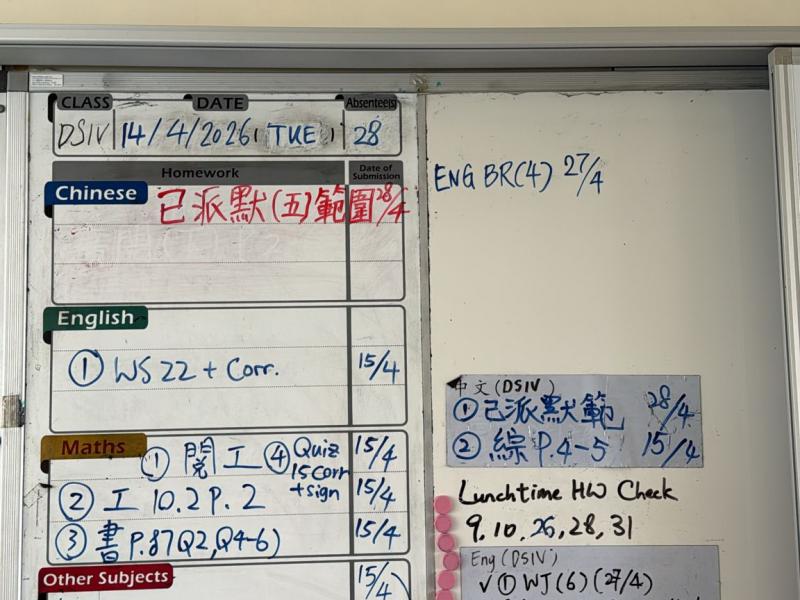 CLASS DATE Absentee(s)
DSIV 14/4/2026, TUE, 28
Homework Date of Submission
Chinese
已派默(五)範圍 28/4
English
① WS 22 + Corr. 15/4
Maths
① 閱工 ④ Quiz 15 Corr + sign 15/4
② 工 10.2 P. 2 15/4
③ 書 P.87 Q2, Q4-6) 15/4
Other Subjects 15/4
ENG BR(4) 27/4
中文(DSIV)
① 已派默範 28/4
② 綜 P.4-5 15/4
Lunchtime HW Check
9, 10, 26, 28, 31
Eng (DSIV)
✓ ① WJ(6) (27/4)